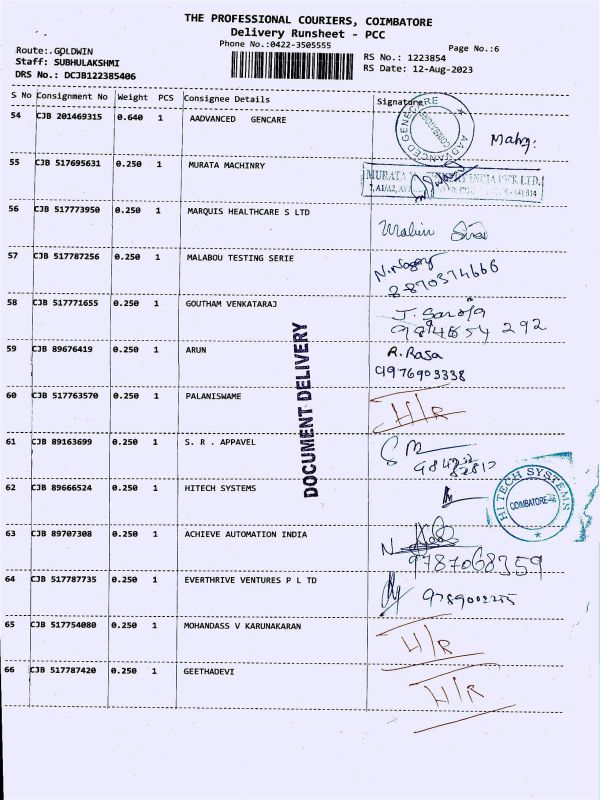 THE PROFESSIONAL COURIERS, COIMBATORE
Delivery Runsheet - PCC
Phone No.:0422-3505555
Page No.:6
Route:.GOLDWIN
Staff: SUBHULAKSHMI
DRS No.: DCJB122385406
RS No.: 1223854
RS Date: 12-Aug-2023
S No Consignment No Weight PCS Consignee Details Signature
54 CJB 201469315 0.640 1 AADVANCED GENCARE
AADVANCED GENECARE
COIMBATORE
55 CJB 517695631 0.250 1 MURATA MACHINRY
MURATA INDIA PVT. LTD.
56 CJB 517773950 0.250 1 MARQUIS HEALTHCARE S LTD
57 CJB 517787256 0.250 1 MALABOU TESTING SERIE
8870374666
58 CJB 517771655 0.250 1 GOUTHAM VENKATARAJ
J. Saroja
292
59 CJB 89676419 0.250 1 ARUN
R. Rasa
9976903338
60 CJB 517763570 0.250 1 PALANISWAME
H/R
61 CJB 89163699 0.250 1 S. R . APPAVEL
62 CJB 89666524 0.250 1 HITECH SYSTEMS
HI TECH SYSTEMS
COIMBATORE
63 CJB 89707308 0.250 1 ACHIEVE AUTOMATION INDIA
9787068359
64 CJB 517787735 0.250 1 EVERTHRIVE VENTURES P L TD
65 CJB 517754080 0.250 1 MOHANDASS V KARUNAKARAN
H/R
66 CJB 517787420 0.250 1 GEETHADEVI
H/R
DOCUMENT DELIVERY